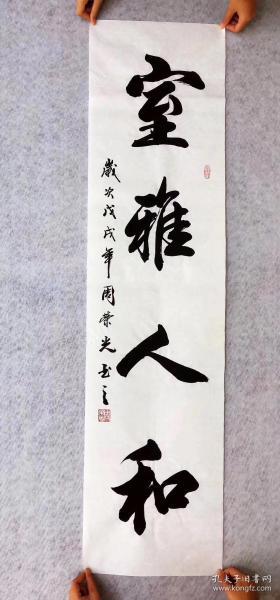 室雅人和
歲次戊戌年周荣光书之
孔夫子旧书网
www.kongfz.com